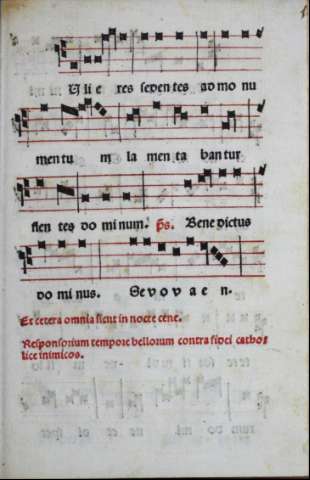 Uli e res seden tes ad mo nu
men tu m la men ta ban tur
flen tes do mi num. ps. Bene dictus
do mi nus. Se v o v a e n.
Et cetera omnia sicut in nocte cene.
Responsorium tempore bellorum contra fidei catho
lice inimicos.